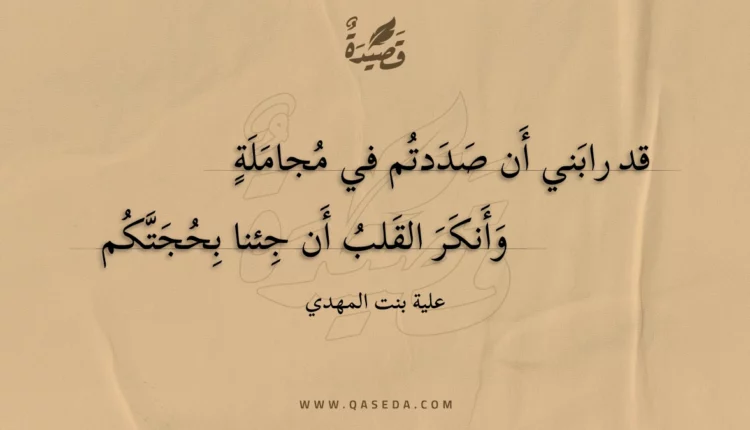 قَصِيدَةٌ
قد رابَني أَن صَدَدتُم في مُجامَلَةٍ
وَأَنكَرَ القَلبُ أَن جِئنا بِحُجَتَّكُم
علية بنت المهدي
WWW.QASEDA.COM